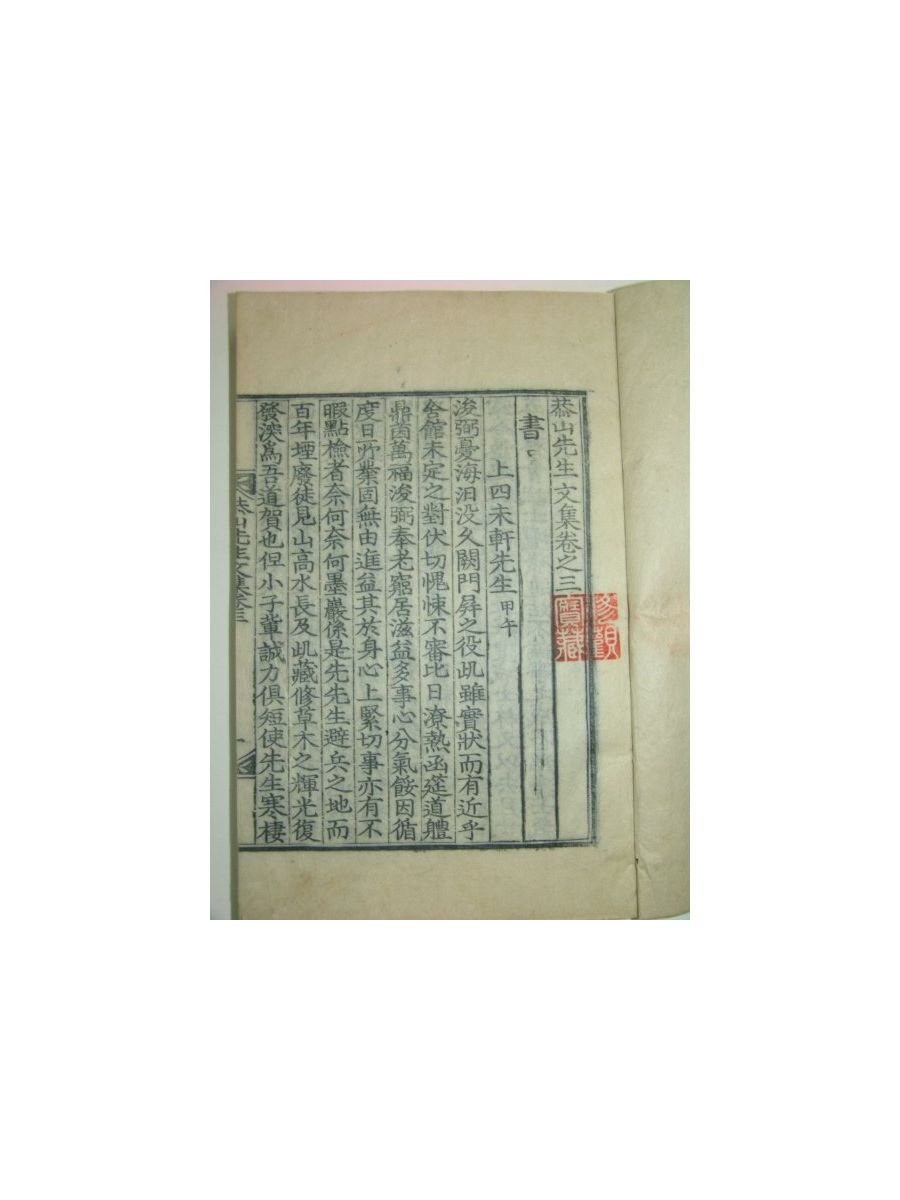 恭山先生文集卷之三
書
上四未軒先生 甲午
浚弼憂海汨没久闕門屛之役此雖實狀而有近乎
舍館未定之對伏切愧悚不審比日潦熱函筵道軆
鼎茵萬福浚弼奉老窮居滋益多事心分氣餒因循
度日所業固無由進益其於身心上緊切事亦有不
暇點檢者奈何奈何墨巖係是先先生避兵之地而
百年堙廢徒見山高水長及此藏修草木之輝光復
發深爲吾道賀也但小子軰誠力俱短使先生寒棲
恭山先生文集卷三
一
寶藏